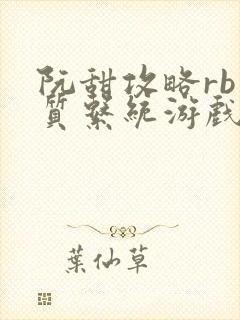 阮甜攻略rb
質系統游戲
葉仙草